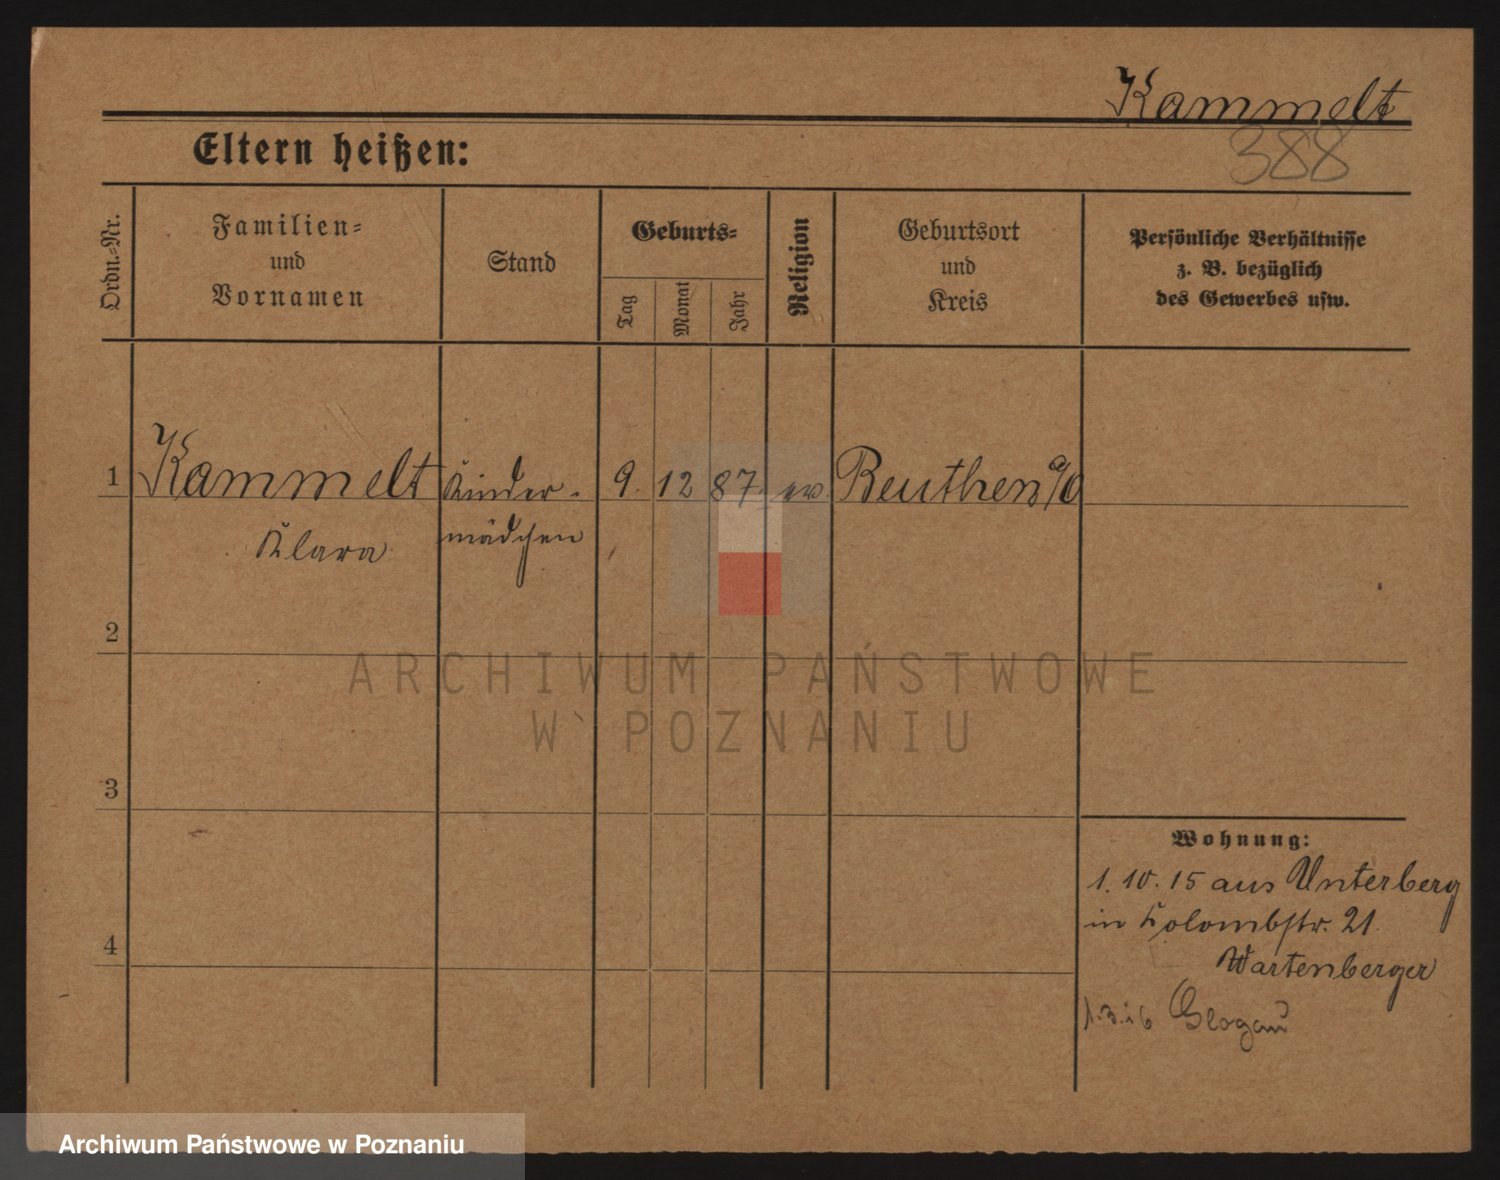 Kammelt
388
Eltern heißen:
Ordn.-Nr.
Familien-
und
Vornamen
Stand
Geburts-
Tag
Monat
Jahr
Religion
Geburtsort
und
Kreis
Persönliche Verhältnisse
z. B. bezüglich
des Gewerbes usw.
1 Kammelt Kinder- 9. 12 87. ev. Beuthen a/O
Klara mädchen
2
ARCHIWUM PAŃSTWOWE
W POZNANIU
3
Wohnung:
1. 10. 15 aus Unterberg
in Kolombstr. 21.
4
Wartenberger
1.3.16 Glogau
Archiwum Państwowe w Poznaniu